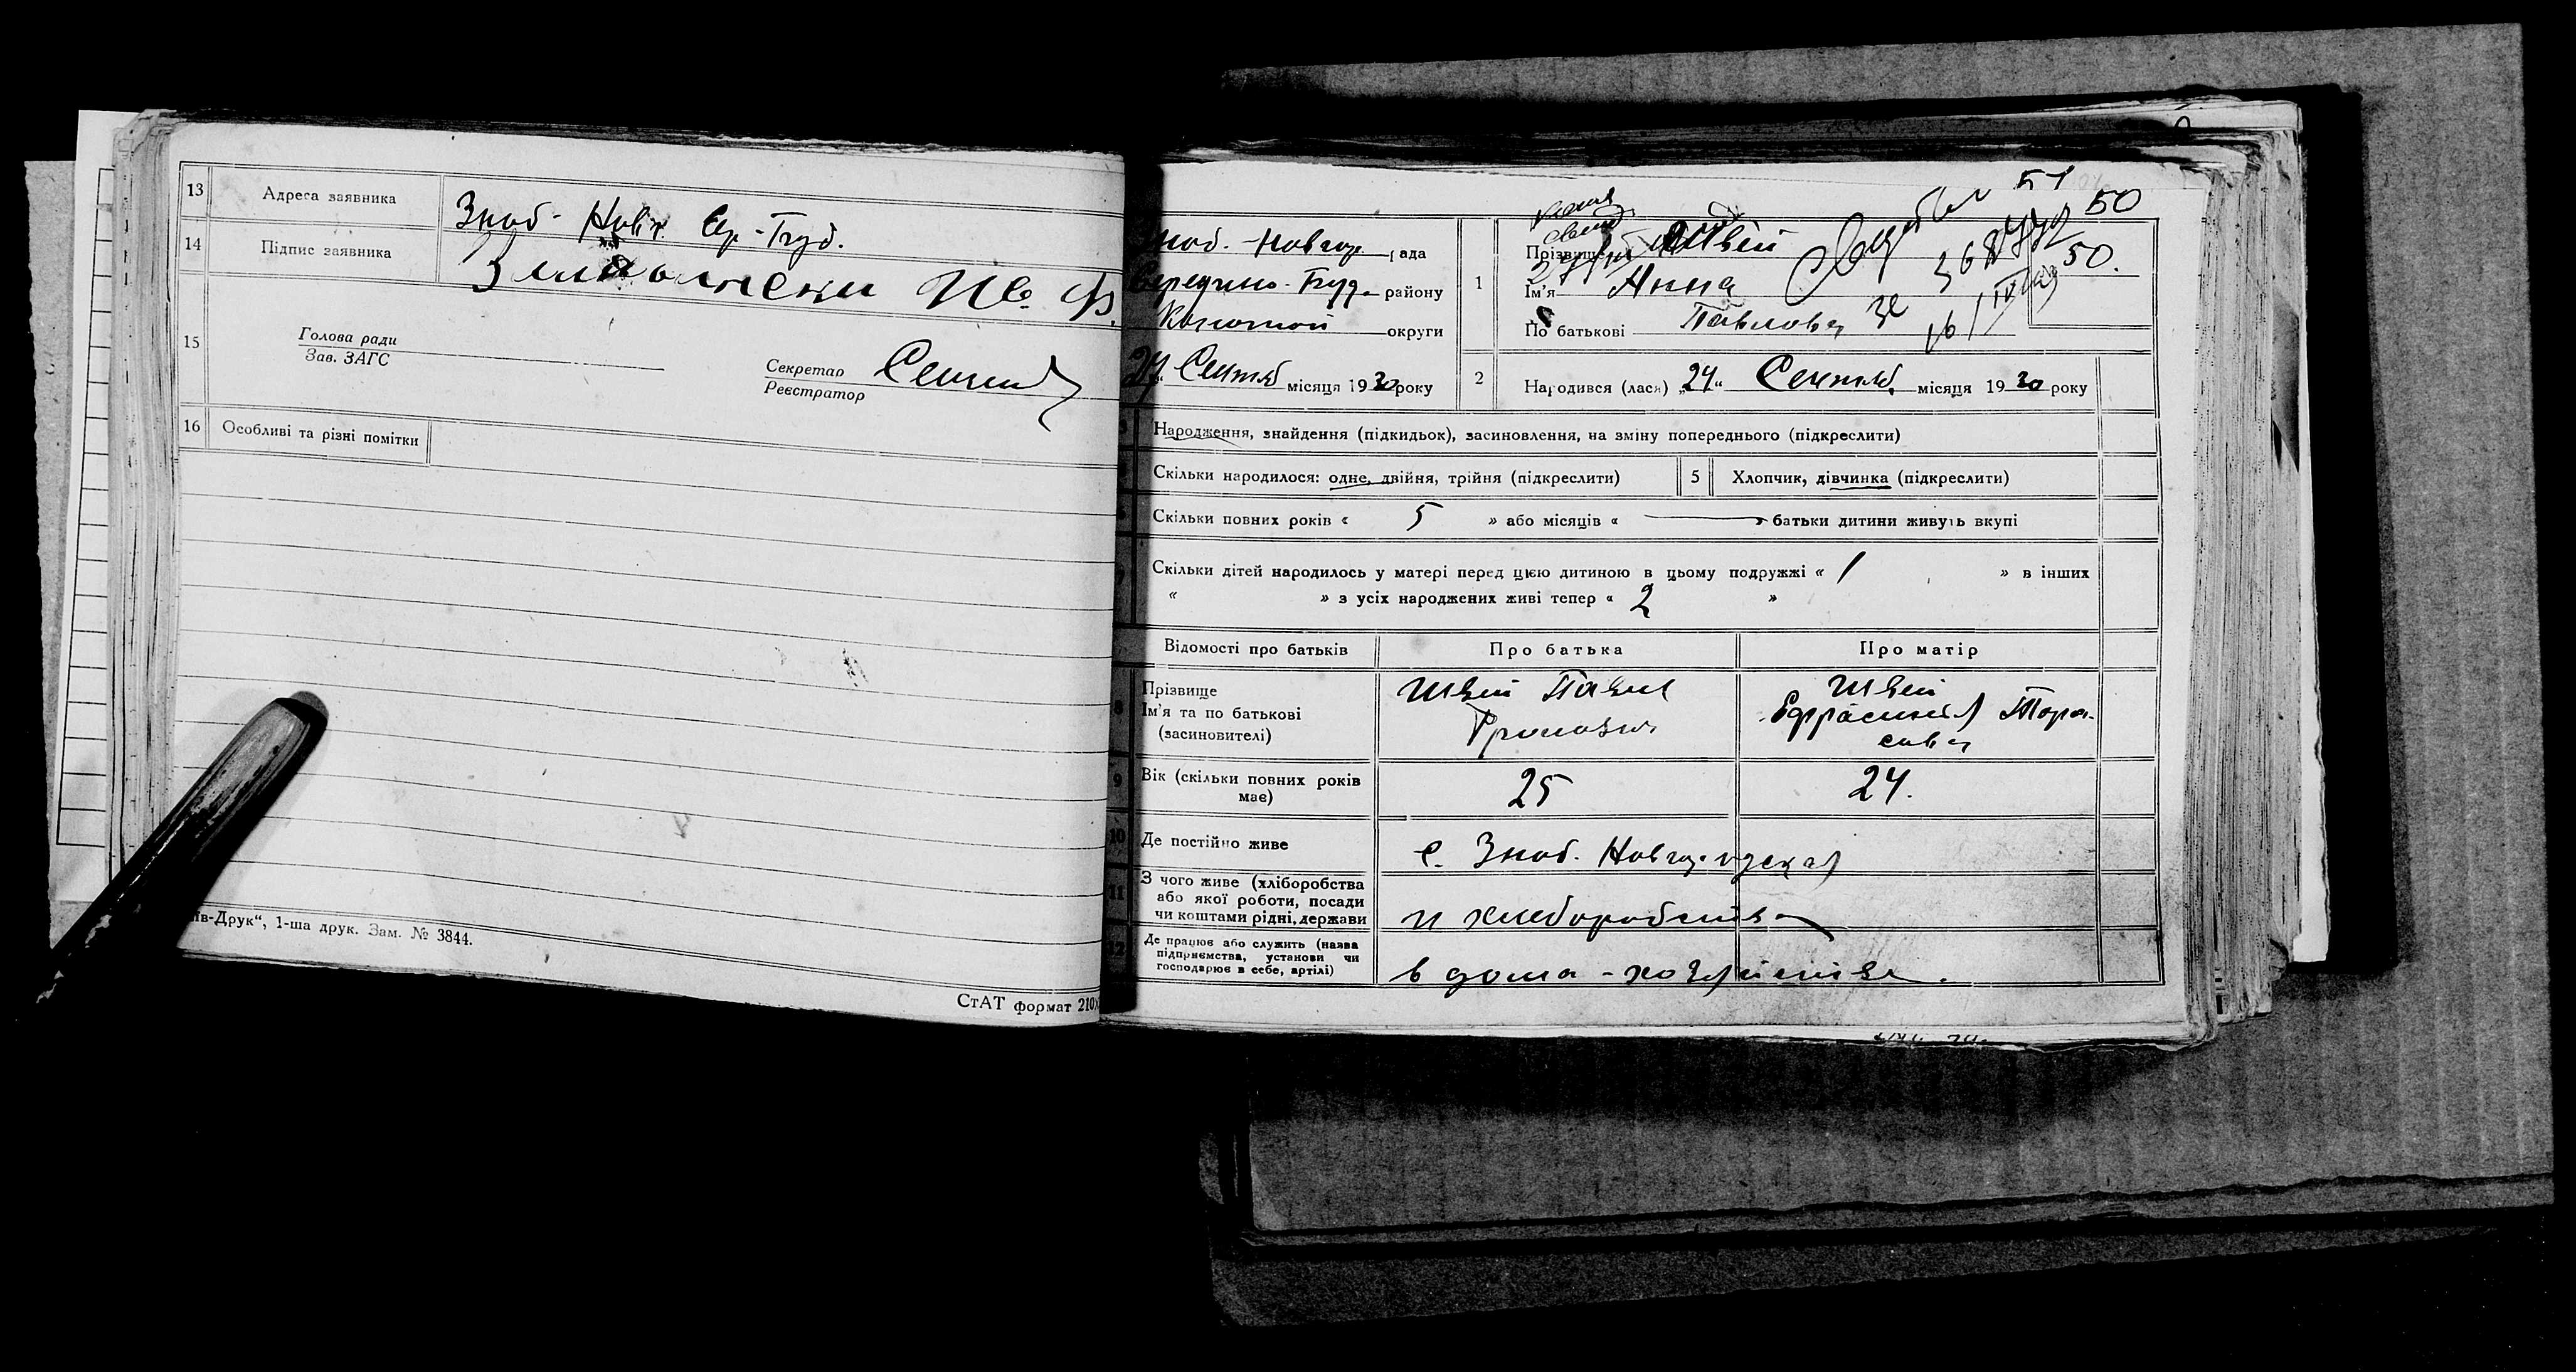 13 Адреса заявника Зноб- Новг. Сер-Буд.
14 Підпис заявника
15 Голова ради
Зав. ЗАГС
Секретар
Реєстратор
16 Особливі та різні помітки
ів-Друк“, 1-ша друк. Зам. № 3844.
СтАТ формат 210
51
50
Зноб. - Новгор рада
Середино-Буд. району
округи
24 Сентяб місяця 1930 року
1 Прізвище Швей
50.
Ім’я Анна
По батькові Павловна
2 Народився (лася) „24“ Сентяб. місяця 1930 року
Народження, знайдення (підкидьок), засиновлення, на зміну попереднього (підкреслити)
Скільки народилося: одне, двійня, трійня (підкреслити)
5 Хлопчик, дівчинка (підкреслити)
Скільки повних років « 5 » або місяців « — » батьки дитини живуть вкупі
Скільки дітей народилось у матері перед цією дитиною в цьому подружжі « 1 » в інших
« » з усіх народжених живі тепер « 2 »
Відомості про батьків Про батька Про матір
8 Прізвище
Ім’я та по батькові
(засиновителі)
Швей Павел
Швей
Ефросиния Тара-
совна
9 Вік (скільки повних років
має)
25
24.
10 Де постійно живе с. Зноб. Новгородская
11 З чого живе (хліборобства
або якої роботи, посади
чи коштами рідні, держави
и хлеборобства
12 Де працює або служить (назва
підприємства, установи чи
господарює в себе, артілі)
в дома - хозяйстве.